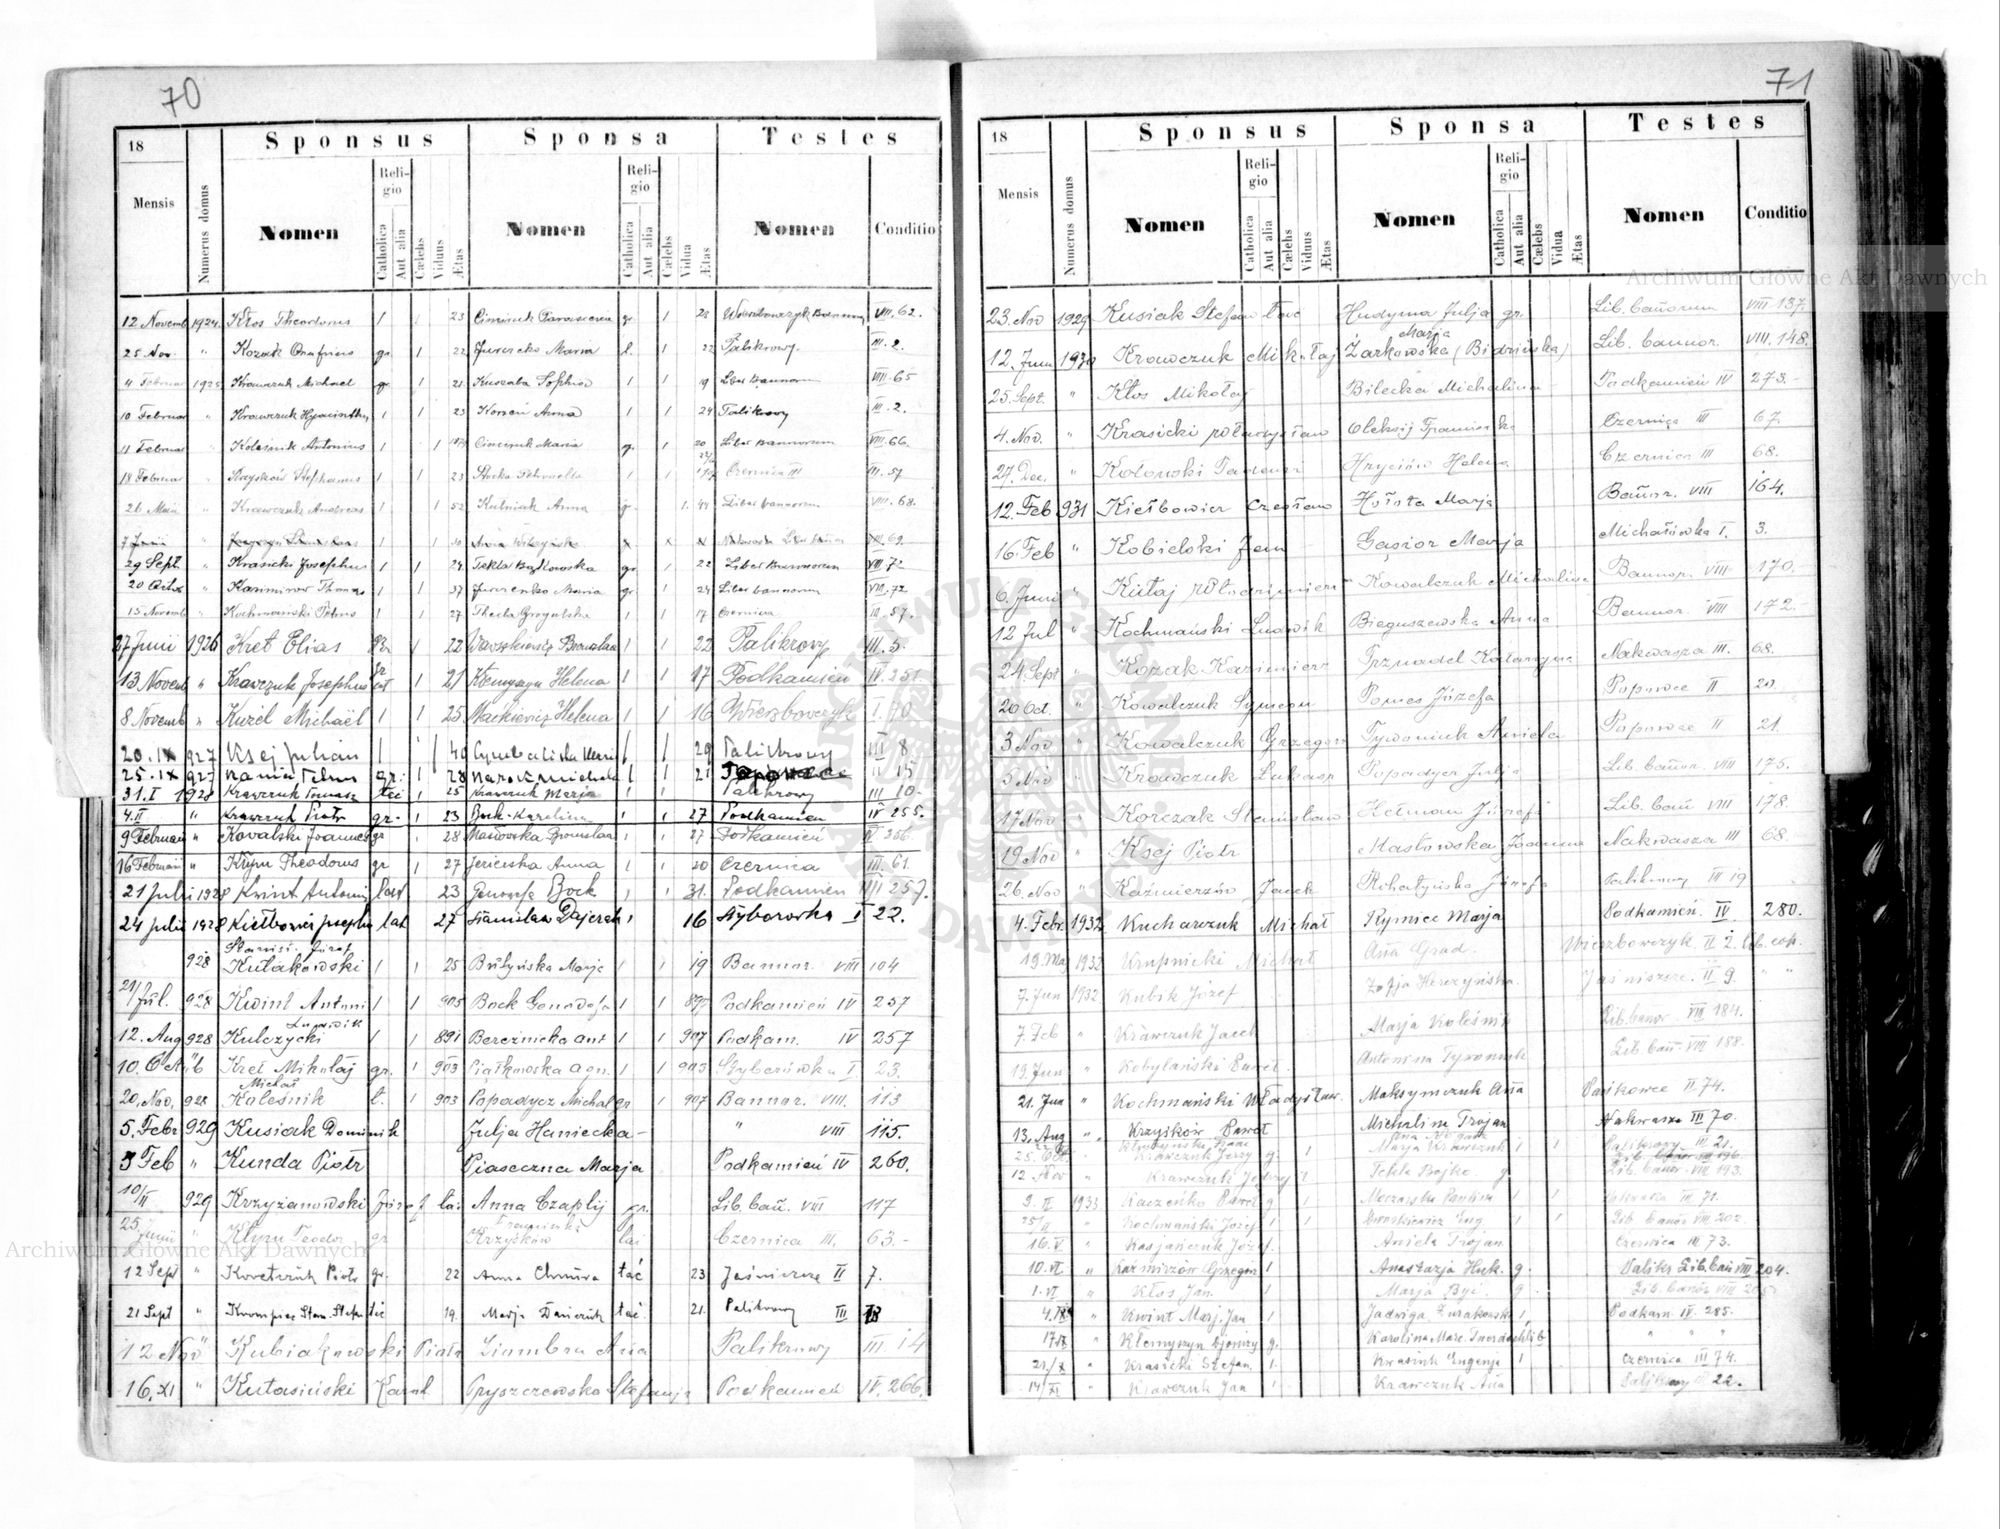 70
18 Sponsus Sponsa Testes
Mensis Numerus domus Nomen Religio Catholica Aut alia Cælebs Viduus Ætas Nomen Religio Catholica Aut alia Cælebs Vidua Ætas Nomen Conditio
12 Novemb 1924 Kłos Theodorus 1 1 23 gr. 1 23 VIII. 62.
25 Nov. " Kozak Onufrius gr. 1 22 Jurecko Maria l. 1 22 Palikrowy. III. 2.
4 Februar 1925 Krawczuk Michael gr 1 21 Kuszaba Sophia 1 1 19 Liber Bannorum VIII. 65
10 Februar " Krawczuk Hyacinthus 1 1 23 Korzeń Anna 1 1 24 Palikrowy III. 2.
11 Februar " Kolesnik Antonius 1 1 Maria gr. 1 20 Liber Bannorum VIII. 66.
18 Februar " Krzyśków Stephanus 1 1 23 Petronella 1 1 Czernica III III. 57
26 Maii " Krawczuk Andreas 1 1 52 Kulniak Anna gr. 1. 44 Liber bannorum VIII. 68.
7 Junii " 1 1 VIII 69.
29 Sept. " Krasicki Josephus 1 1 24 Tekla gr. 1 22 Liber Bannorum VIII. 72
20 Octob " Kazimirow Thomas 1 1 37 Jurcenko Maria gr. 1 24 Liber bannorum VIII. 72
15 Novemb " Kochmański Petrus 1 1 27 Thecla 1 1 17 Czernica III. 57.
27 Junii 1926 Kret Elias gr. 1 22 Bronislaa 1 1 22 Palikrovy III. 5.
13 Novemb " Krawczuk Josephus gr cat 1 21 Klemyszyn Helena 1 1 17 Podkamień IV. 251.
8 Novemb " Kuzel Michaël 1 1 25 Mackiewicz Helena 1 1 16 Wierzbowczyk I. 70
20. IX 927 Ksej Julian 1 1 40 Cymbalista Maria 1 1 29 Palikrowy III 8
25. IX 927 Kania gr. 1 28 1 1 21 II 15
31. I 1928 Krawczuk Tomasz łać 1 25 Krawczuk Marja 1 1 Palikrowy III 10.
4. II " Krawczuk Piotr gr. 1 23 Bock Karolina 1 1 27 Podkamień IV 255.
9 Februarii " Kowalski Joannes gr 1 28 Masłowska Bronislaa 1 1 27 Podkamień IV 256
16 Februarii " Kłym Theodorus gr 1 27 Jezierska Anna 1 1 20 Czernica III. 61.
21 Julii 1928 Kwint Antoni łać 23 Genowefa Bock 1 1 31. Podkamień 257.
24 Julii 1928 Kiełbowicz Joseph lat 27 Stanislaa 1 16 Styborowka I 22.
928 Kułakowski Stanisł. Józef 1 1 25 Bułyńska Marja 1 1 19 Bannor. VIII 104
21/Jul. 928 Kwint Antoni 1 1 905 Bock Genowefa 1 1 897 Podkamień IV 257
12. Aug 928 Kulczycki Ludwik 1 1 891 Bereznicka Ant 1 1 907 Podkam. IV 257
10. Okt " Kret Mikołaj gr. 1 903 Piątkowska Agn. 1 1 903 Styborówka I 23.
20. Nov. 928 Koleśnik Michał ł. 1 903 Popadycz Michal gr 1 907 Bannor. VIII. 113
5. Febr 929 Kusiak Dominik Julja Haniecka — " VIII 115.
3 Feb " Kunda Piotr Piaseczna Marja Podkamień IV 260.
10/II 929 Krzyżanowski Józef łać Anna Czaplij gr. Lib. bań. VIII 117
25. Junii " Kłym Teodor gr Krzyśków Franciszka łać Czernica III. 63.-
12 Sept " Kowetczuk Piotr gr. 22 Anna Chmura łać 23 Jaśniszcze II 7.
21 Sept " Stan. Stefan łać 19. Marja Danczuk łać. 21. Palikrowy III 13
12 Nov " Kubiakowski Piotr Ziembra Ana Palikrowy III 14
16. XI " Kutasiński Karol Pryszczewska Stefanja Podkamień IV. 266.
71
18 Sponsus Sponsa Testes
Mensis Numerus domus Nomen Religio Catholica Aut alia Cælebs Viduus Ætas Nomen Religio Catholica Aut alia Cælebs Vidua Ætas Nomen Conditio
23. Nov 1929 Kusiak Stefan łać Hudyma Julja gr. Lib. bańorum VIII 137.
12. Jun 1930 Krawczuk Mikołaj Żarkowska Marja (Bidzińska) Lib. bannor. VIII. 148.
25. Sept. " Kłos Mikołaj Bilecka Michalina Podkamień IV 273.-
4. Nov. " Krasicki Władysław Oleksij Franciszka Czernica III 67.
27. Dec. " Kołowski Tadeusz Hryciów Helena Czernica III 68.
12. Feb 931 Kiełbowicz Czesław Hołota Marja Bańor. VIII 164.
16. Feb " Kobielski Jan Gąsior Marja Michałówka I. 3.
6. Junii " Kutaj Włodzimierz Kowalczuk Michalina Bannor. VIII 170.-
12 Jul " Kochmański Ludwik Bieguszewska Anna Bannor. VIII 172.-
24 Sept " Kozak Kazimierz Trznadel Katarzyna Nakwasza III. 68.
20 Oct. " Kowalczuk Symeon Pomes Józefa Popowce II 20.
3 Nov " Kowalczuk Grzegorz Tywoniuk Aniela Popowce II 21.
5 Nov " Krawczuk Łukasz Popadycz Julja Lib. bańor. VIII 175.-
17 Nov " Korczak Stanisław Hetman Józefa Lib. bań VIII 178.
19 Nov " Ksej Piotr Masłowska Joanna Nakwasza III 68.-
26. Nov " Kaźmierzów Jacek Rohatyńska Józefa Palikrowy III 19
4. Febr 1932 Kucharczuk Michał Rymiec Marja Podkamień. IV. 280.
19. Maj 1932 Krupnicki Michał Ana Grad. Wierzbowczyk II 2. lib. cop.
7. Jun 1932 Kubik Józef Zofja Herczyńska. Jaśniszcze. II 9. " "
7. Feb " Krawczuk Jacek Marja Koleśnik Lib. bańor VIII 184.
19. Jun " Kobylański Paweł. Antonina Tywoniuk Lib. Bań. VIII 188.
21. Jun " Kochmański Władysław. Maksymczuk Ana Pańkowce II. 74.
13. Aug " Krzyśków Paweł Michalina Trojan Nakwasza III 70.
25. Oct Krawczuk Jerzy g. 1 Marja Krawczuk 1 1 Palikrowy III. 21.
12 Nov Krawczuk Jerzy 1 Tekla Bojko g. Lib. bańor. VIII 193.
9. II 1933 Kaczeńko Paweł g 1 Moczarska Paulina 1 1 Nakwasza III. 71.
25/II " Kochmański Józef 1 1 Eug. 1 1 Lib. Bańor VIII. 202.
16. V " Kasjańczuk Józef. Aniela Trojan Czernica III. 73.
10. VI " Kaźmirzów Grzegorz 1 Anastazja Huk. g. Palikr. Lib. bań VIII 204.
1. VI " Kłos Jan 1 Marja Być. g. Lib. bańor VIII 205
4. IX " Kwint Marj. Jan 1 Jadwiga Żurakowska 1 Podkam. IV. 285.
17. IX " Klemyszyn Djonizy g. Karolina Marc. " " "
21/X " Krasicki Stefan 1. Kwaśnik Eugenja 1 Czernica III 74.
14/XI " Krawczuk Jan 1 Krawczuk Ana Palikrowy III 22.
Archiwum Główne Akt Dawnych
Archiwum Główne Akt Dawnych
ARCHIWUM GŁÓWNE AKT DAWNYCH